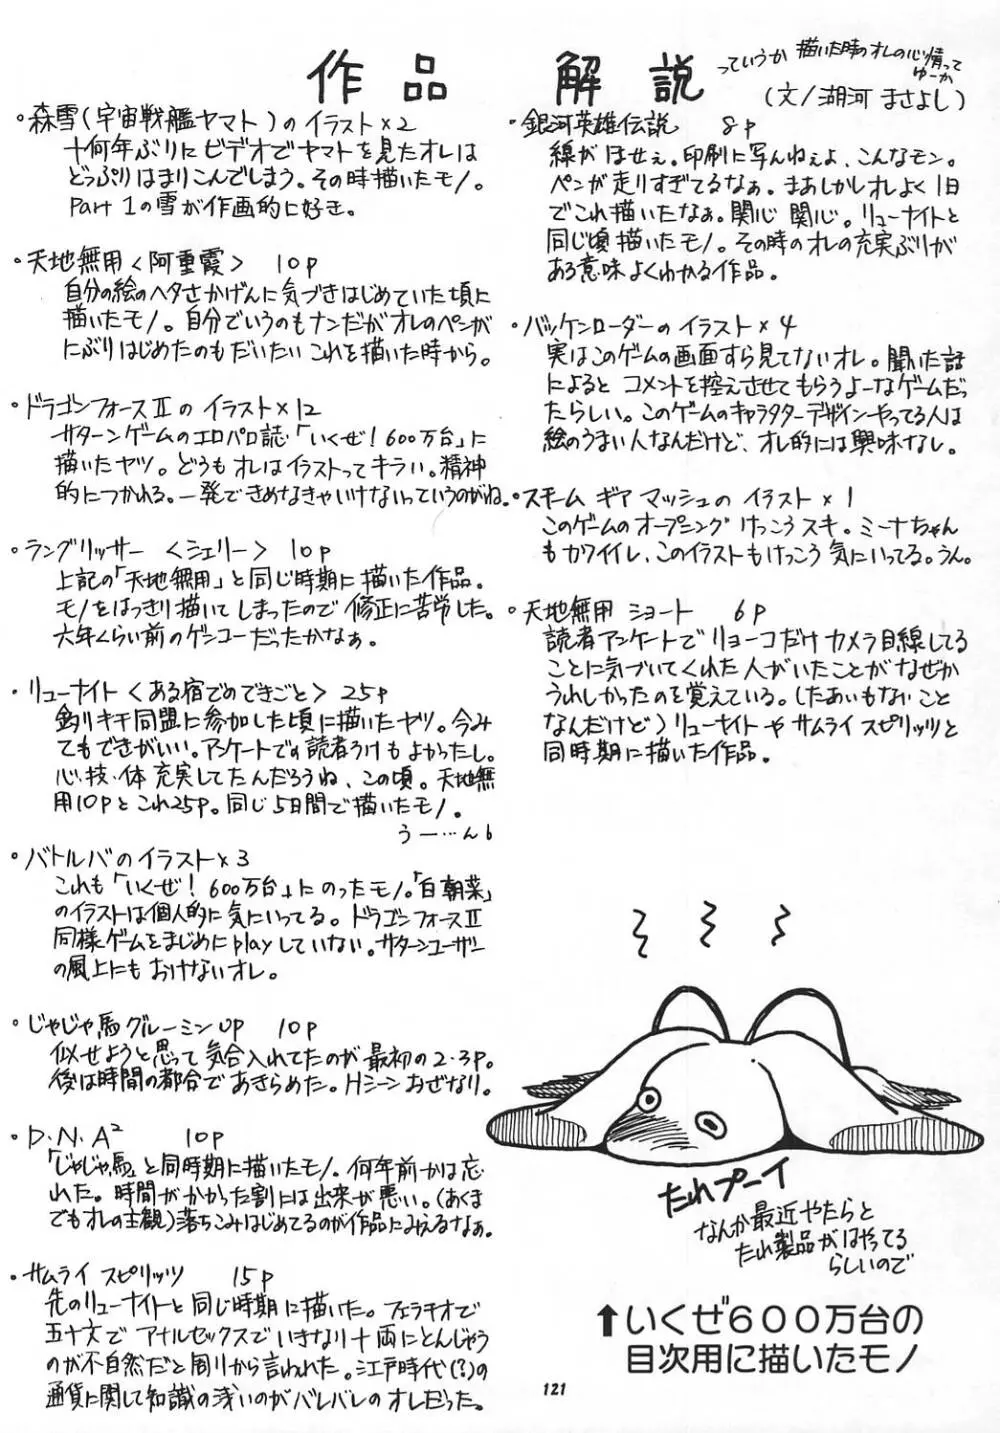 作品 解説
っていうか 描いた時のオレの心情って
ゆーか
(文/湖河 まさよし)
・森雪(宇宙戦艦ヤマト)の イラスト×2
十何年ぶりに ビデオで ヤマトを見たオレは
どっぷりはまりこんでしまう。その時描いたモノ。
Part 1の雪が作画的に好き。
・天地無用<阿重霞> 10P
自分の絵のヘタさかげんに気づきはじめていた頃に
描いたモノ。自分でいうのもナンだがオレのペンが
にぶりはじめたのもだいたい これを描いた時から。
・ドラゴンフォースⅡの イラスト×12
サターンゲームのエロパロ誌・「いくぜ!600万台」に
描いたヤツ。どうも オレはイラストってキライ。精神
的につかれる。一発できめなきゃいけないっていうのがね。
・ラングリッサー <シェリー> 10P
上記の「天地無用」と同じ時期に描いた作品。
モノをはっきり描いてしまったので修正に苦労した。
六年くらい前のゲンコーだったかなぁ。
・リューナイト<ある宿でのできごと> 25P
釣りキチ同盟に参加した頃に描いたヤツ。今み
てもできがいい。アンケートでの読者うけもよかったし。
心・技・体 充実してたんだろうね、この頃。天地無
用10Pとこれ25P。同じ5日間で描いたモノ。
うー…ん6
・バトルバのイラスト×3
これも「いくぜ!600万台」に のったモノ。「白朝菜」
のイラストは個人的に気にいってる。ドラゴンフォースⅡ
同様ゲームをまじめにplayしていない。サターンユーザー
の風上にも おけないオレ。
・じゃじゃ馬グルーミンUP 10P
似せようと思って 気合入れてたのが 最初の2・3P。
後は時間の都合で あきらめた。Hシーン おざなり。
・D・N・A² 10P
「じゃじゃ馬」と同時期に描いたモノ。何年前かは忘
れた。時間がかかった割には出来が悪い。(あくま
でもオレの主観)落ちこみはじめてるのが作品にみえるなぁ。
・サムライ スピリッツ 15P
先のリューナイトと同じ時期に描いた。フェラチオで
五十文で アナルセックスで いきなり十両にとんじゃう
のが不自然だと周りから言われた。江戸時代(?)の
通貨に関して知識の浅いのがバレバレのオレだった。
・銀河英雄伝説 8P
線がほせぇ。印刷に写んねぇよ、こんなモン。
ペンが走りすぎてるなぁ。まあしかしオレよく1日
でこれ描いたなぁ。関心 関心。リューナイトと
同じ頃描いたモノ。その時のオレの充実ぶりが
ある意味よくわかる作品。
・バッケンローダーのイラスト×4
実はこのゲームの画面すら見てないオレ。聞いた話
によると コメントを控えさせてもらうよーなゲームだっ
たらしい。このゲームのキャラクターデザインやってる人は
絵のうまい人なんだけど、オレ的には興味なし。
・スチーム ギア マッシュの イラスト×1
このゲームのオープニング けっこうスキ。ミーナちゃん
もカワイイし、このイラストもけっこう気にいってる。うん。
・天地無用 ショート 6P
読者アンケートで リョーコだけ カメラ目線してる
ことに気づいてくれた人がいたことが なぜか
うれしかったのを覚えている。(たあいもないこと
なんだけど)リューナイトや サムライスピリッツと
同時期に描いた作品。
たれプーイ
なんか最近やたらと
たれ製品がはやってる
らしいので
↑いくぜ600万台の
目次用に描いたモノ
121